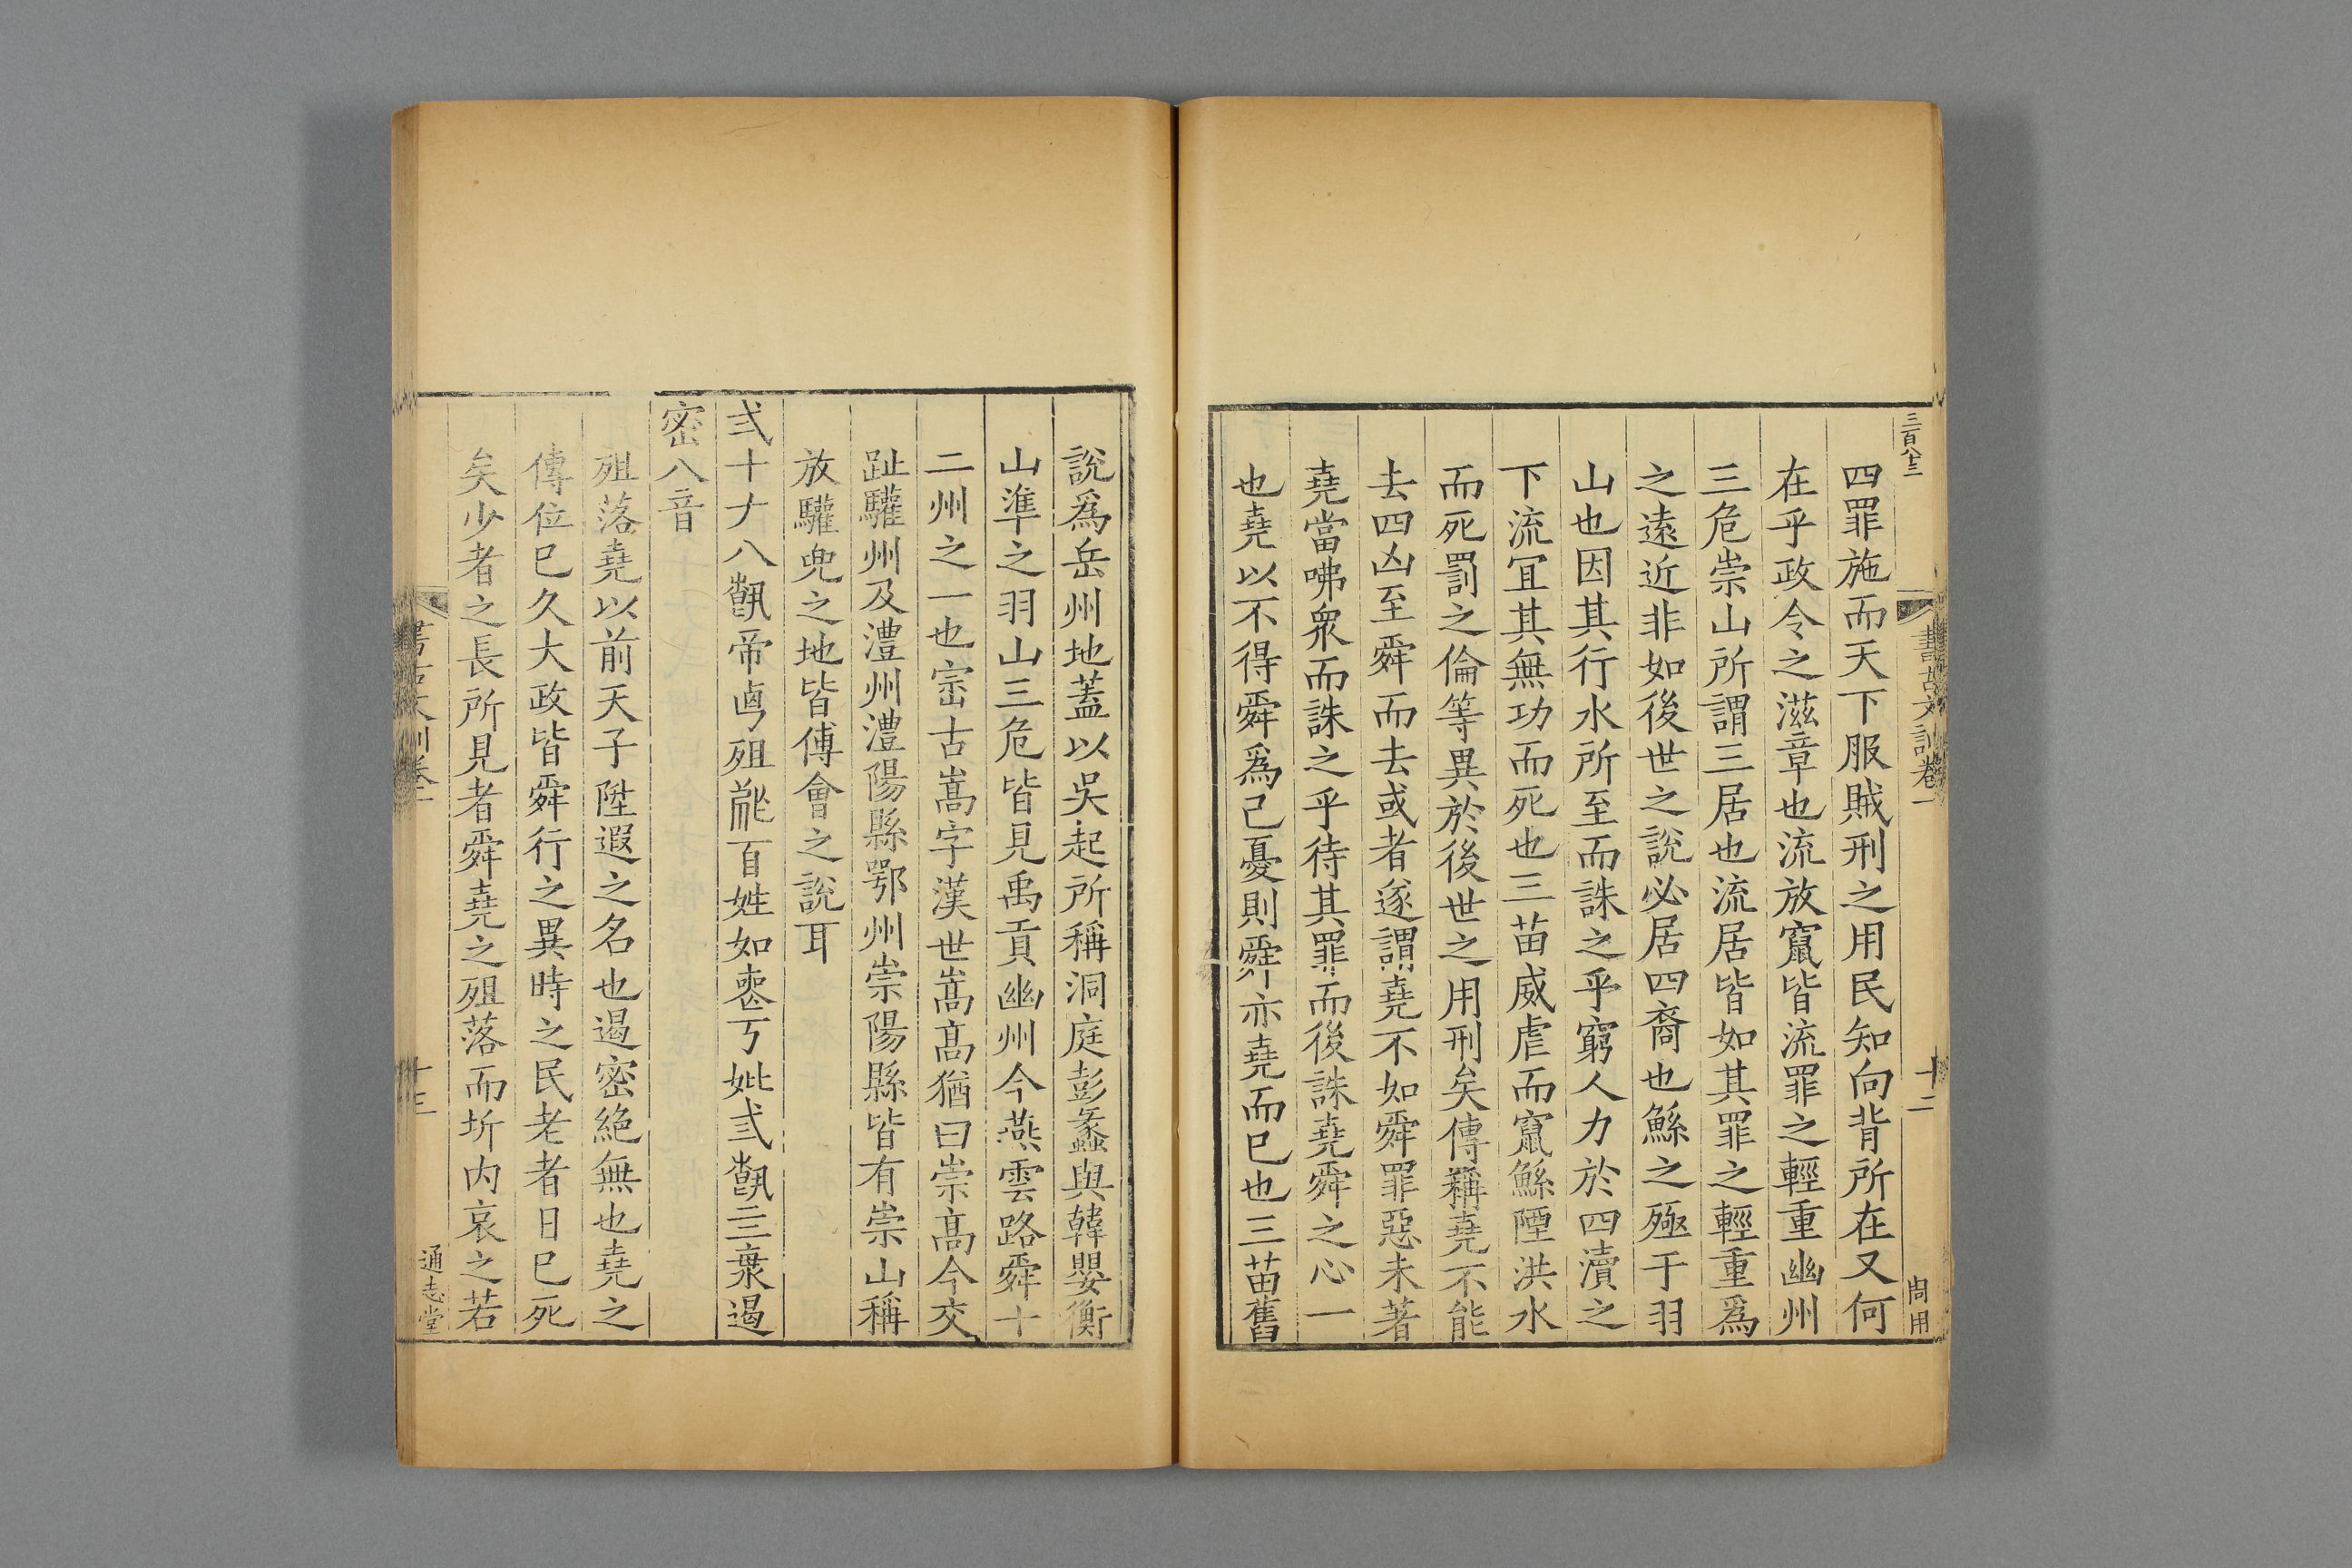 三百八十三
書古文訓卷一
十二
四罪施而天下服賊刑之用民知向背所在又何
在乎政令之滋章也流放竄皆流罪之輕重幽州
三危崇山所謂三居也流居皆如其罪之輕重爲
之遠近非如後世之說必居四裔也鯀之殛于羽
山也因其行水所至而誅之乎窮人力於四瀆之
下流冝其無功而死也三苗威虐而竄鯀陻洪水
而死罰之倫等異於後世之用刑矣傳稱堯不能
去四凶至舜而去或者遂謂堯不如舜罪惡未著
堯當咈衆而誅之乎待其罪而後誅堯舜之心一
也堯以不得舜爲己憂則舜亦堯而已也三苗舊
說爲岳州地蓋以吳起所稱洞庭彭蠡與韓嬰衡
山準之羽山三危皆見禹貢幽州今燕雲路舜十
二州之一也崈古嵩字漢世嵩高猶曰崇高今交
趾驩州及澧州澧陽縣鄂州崇陽縣皆有崇山稱
放驩兜之地皆傅會之說耳
弍十ナ八𩏑帝𠧟殂𦤀百姓如𠷔丂妣弍𩏑亖𠱧遏
密八音
殂落堯以前天子陞遐之名也遏密絕無也堯之
傳位已久大政皆舜行之異時之民老者日已死
矣少者之長所見者舜堯之殂落而圻内哀之若
書古文訓卷一
十三
通志堂